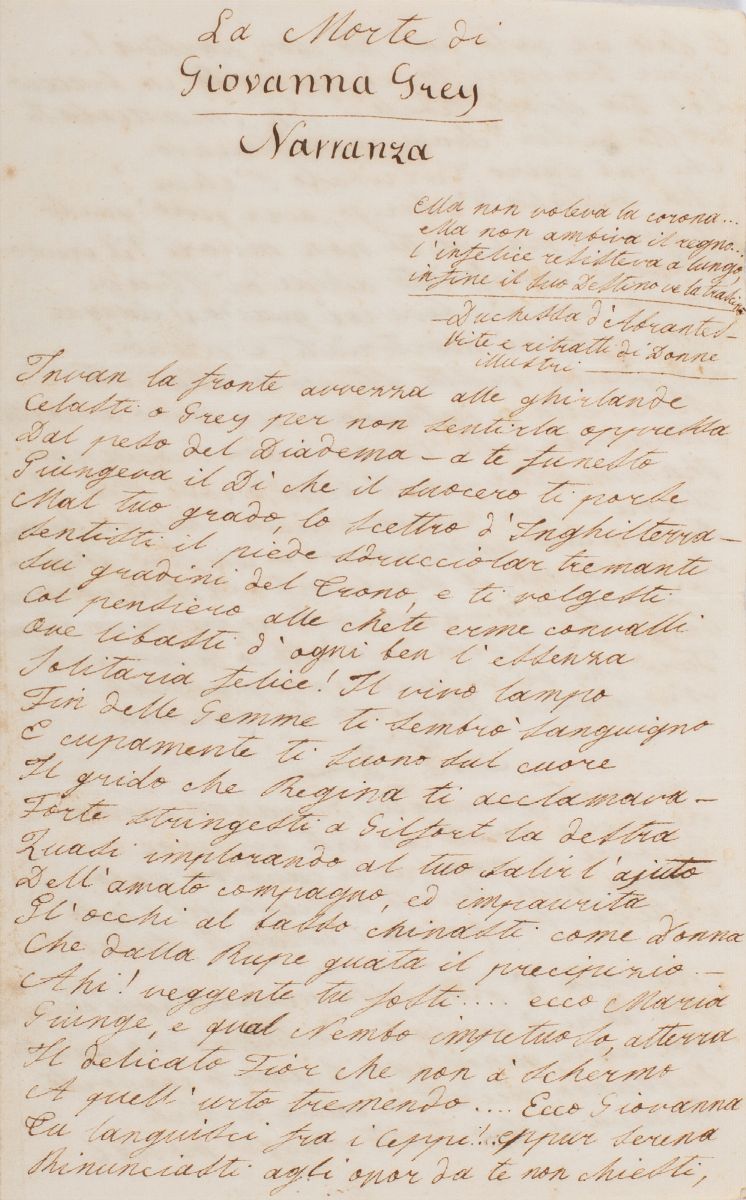 La Morte di
Giovanna Grey
Narranza
Ella non voleva la corona...
Ella non ambiva il regno...
l'infelice resisteva a lungo,
infine il suo Destino ve la trascinò
- Duchessa d'Abrantes -
Vite e ritratti di Donne
illustri
Invan la fronte avvezza alle ghirlande
Celasti o Grey per non sentirla oppressa
Dal peso del Diadema - a te funesto
Giungeva il Di che il suocero ti porse
Mal tuo grado, lo scettro d'Inghilterra -
Sentisti il piede sdrucciolar tremante
Sui gradini del Trono, e ti volgesti
Col pensiero alle chete erme convalli
Ove libasti d'ogni ben l'essenza
Solitaria felice! Il vivo lampo
Fin delle Gemme ti sembrò sanguigno
E cupamente ti suono sul cuore
Il grido che Regina ti acclamava -
Forte stringesti a Gilfort la destra
Quasi implorando al tuo salir l'ajuto
Dell'amato compagno, ed impaurita
Gl'occhi al basso chinasti come Donna
Che dalla Rupe guata il precipizio. -
Ahi! veggente tu fosti.... ecco Maria
Giunge, e qual Nembo impetuoso, atterra
Il delicato Fior che non à schermo
A quell'urto tremendo.... Ecco Giovanna
Tu languisci fra i Ceppi!... eppur serena
Rinunciasti agli onor da te non chiesti,